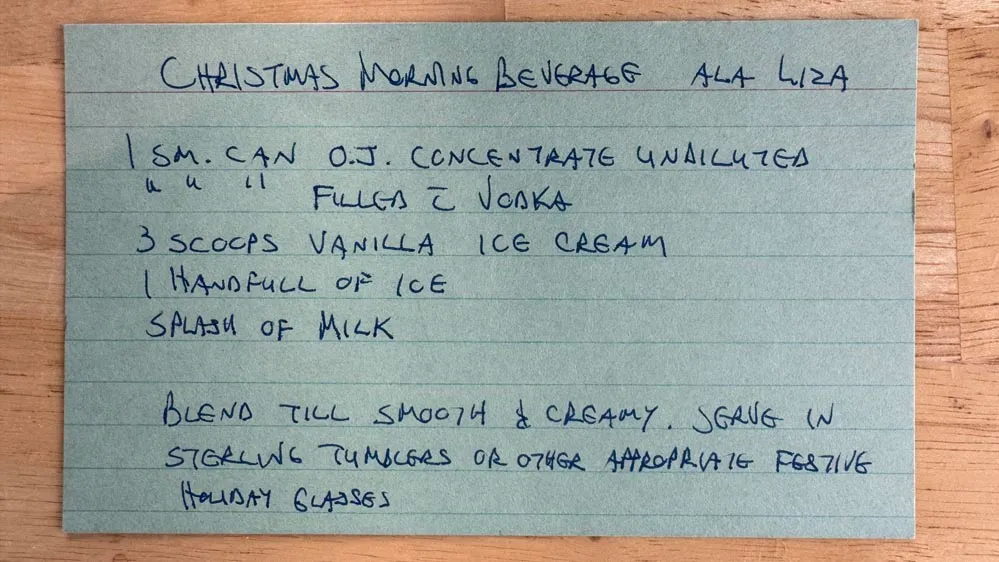 CHRISTMAS MORNING BEVERAGE ALA LIZA
1 SM. CAN O.J. CONCENTRATE UNDILUTED
" " " FILLED c̄ VODKA
3 SCOOPS VANILLA ICE CREAM
1 HANDFULL OF ICE
SPLASH OF MILK
BLEND TILL SMOOTH & CREAMY. SERVE IN
STERLING TUMBLERS OR OTHER APPROPRIATE FESTIVE
HOLIDAY GLASSES